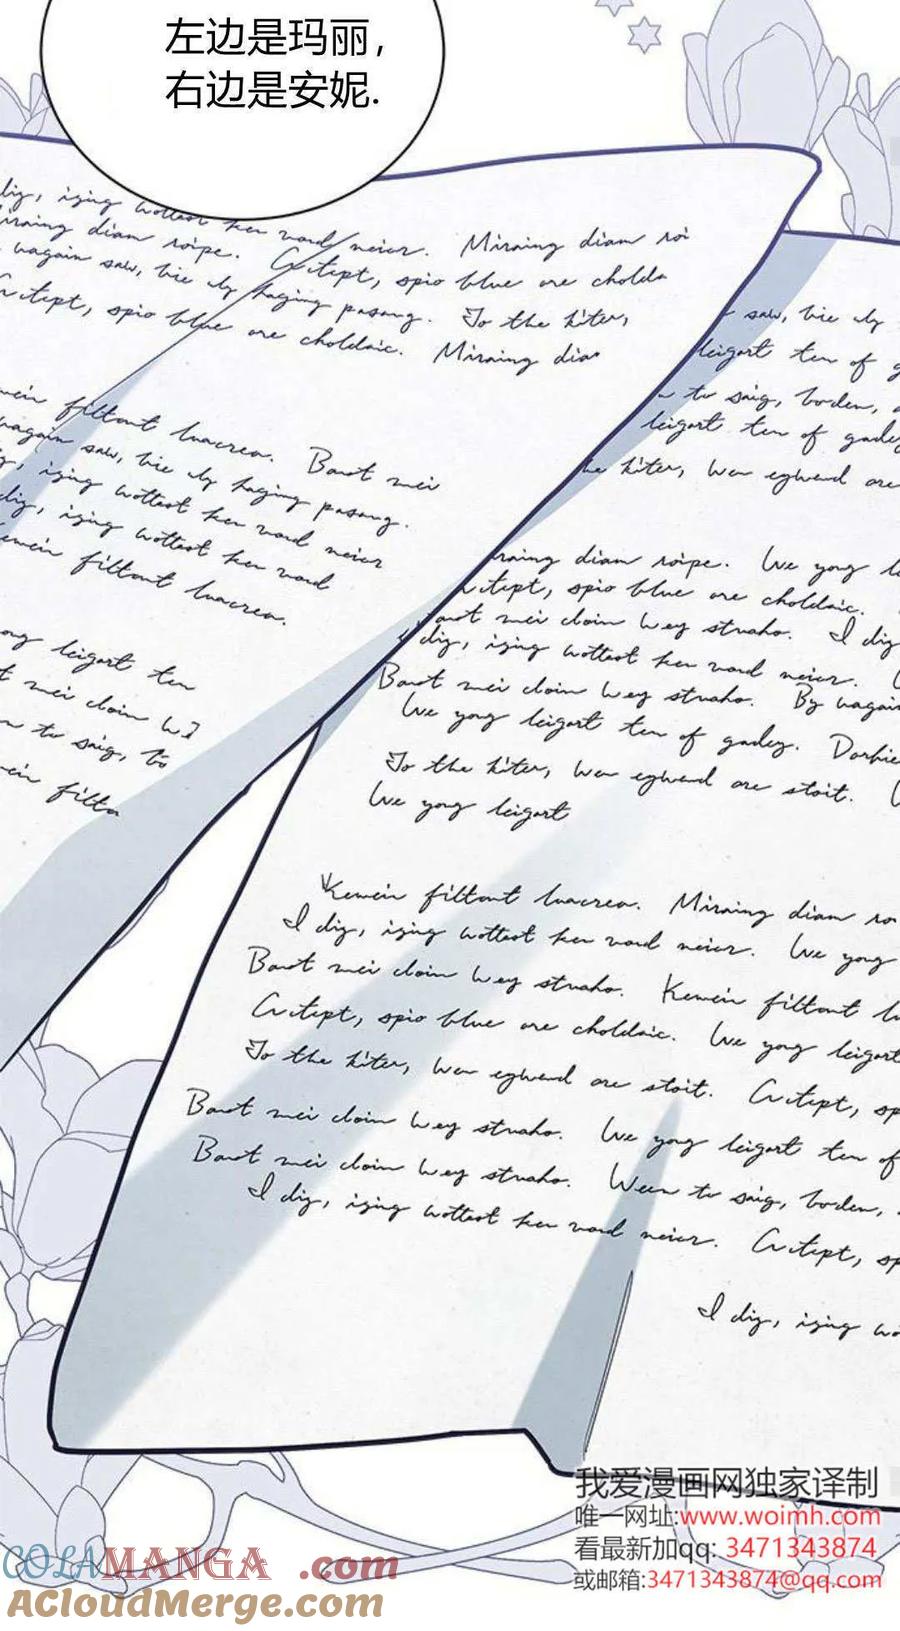 左边是玛丽，
右边是安妮.
dig, izing wottest ken vand neier. Miraing diam roi
Miraing diam roipe. Critept, spio blue are cholda
wagain saw, bie uly haging pasang. To the hiter,
Critept, spio blue are choldaic. Miraing dia
filtant luacrea. Baut mei
wagain saw, bie uly haging pasang.
izing wottest ken vand neier
dig, izing wottest ken vand
filtant luacrea.
leigart ten
mei cloin
tu saig,
filta
saw, bie uly
leigart ten of
tu saig, boden,
leigart ten of gadey
hiter, wen egwend are
diam roipe. We yong
Critept, spio blue are choldaic.
Baut mei cloin wey struaho. I dig
dig, izing wottest ken vand neier.
Baut mei cloin wey struaho. By wagain
We yong leigart ten of gadey.
To the hiter, wen egwend are stoit.
We yong leigart
Kemein filtant luacrea. Miraing diam ro
I dig, izing wottest ken vand neier. We yong
Baut mei cloin wey struaho. Kemein filtant
Critept, spio blue are choldaic. We yong leigart
To the hiter, wen egwend are stoit. Critept, sp
Baut mei cloin wey struaho. We yong leigart ten of
Baut mei cloin wey struaho. Ween tu saig, boden,
I dig, izing wottest ken vand neier. Critept, sp
I dig, izing
我爱漫画网独家译制
唯一网址:www.woimh.com
看最新加qq: 3471343874
或邮箱:3471343874@qq.com
COLAMANGA.com
ACloudMerge.com